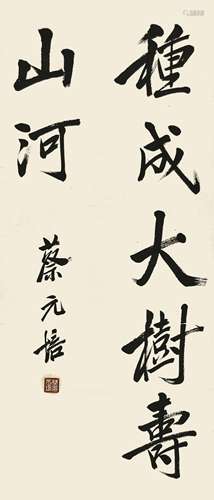 種成大樹壽
山河
蔡元培